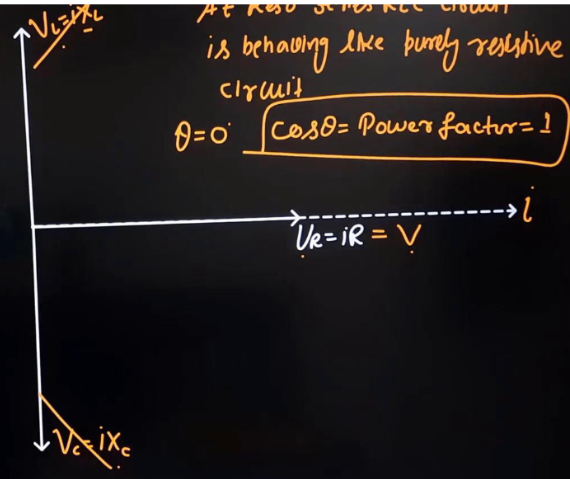 V_L=iX_L
is behaving like purely resistive
circuit
θ=0° cosθ= Power factor= 1
i
V_R=iR = V
V_c=iX_c